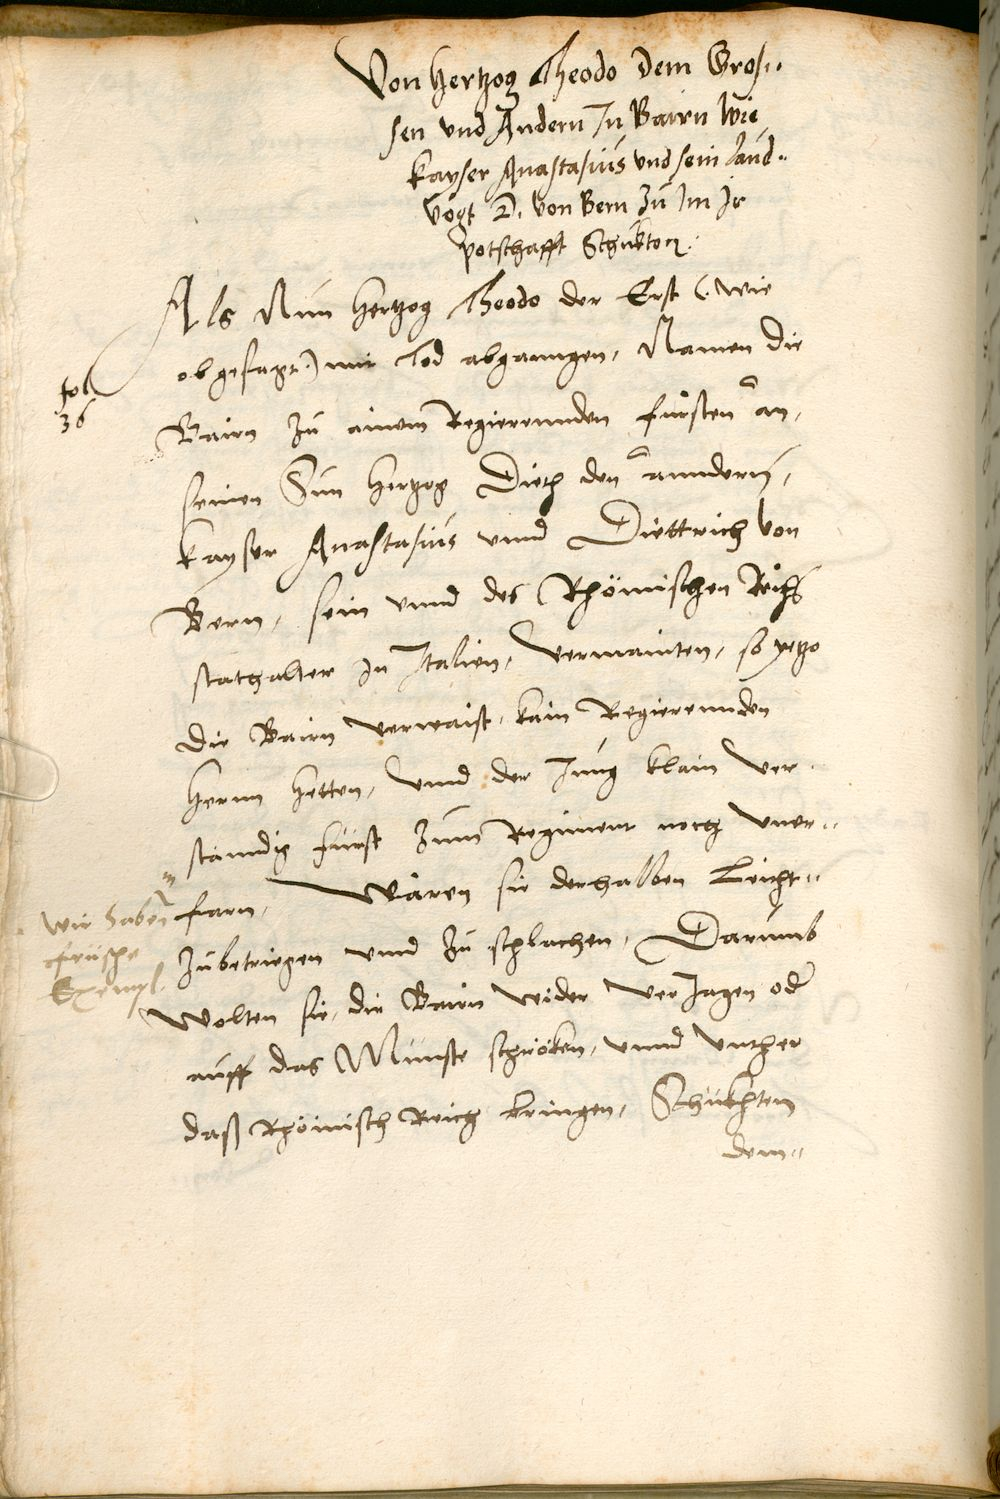 Von Hertzog Theodo dem Gros„
sen und Andern In Bairn wie
kayser Anastasius und sein Land„
vogt D. von Bern Zu Im Ir
potschafft Schikten.
Als Nun Hertzog Theodo der Erst (wie
obgesagt) mit Tod abganngen, Namen die
fol.
36
Bairn Zu ainem Regierennden fürsten an,
seinen Sun Hertzog Dieth den anndern,
kayser Anastasius unnd Diettrich von
Bern, sein unnd des Rhömischen Reichs
stathalter In Italien, Vermainten, so yetzo
die Bairn verwaist, kain Regierennden
Herrn hetten, Unnd der Jung klain ver
stanndig fürst Zum Regiment noch uner„
farn, Wären sie derhalben Leicht„
wir haben
früsche
Exempl.
Zubetriegen unnd Zu schlachen, Darumb
Wolten sie, die Bairn wider ver Jagen oder
auff das Münste schröken, unnd Unther
daß Rhömisch Reich bringen, Schikhten
dem„